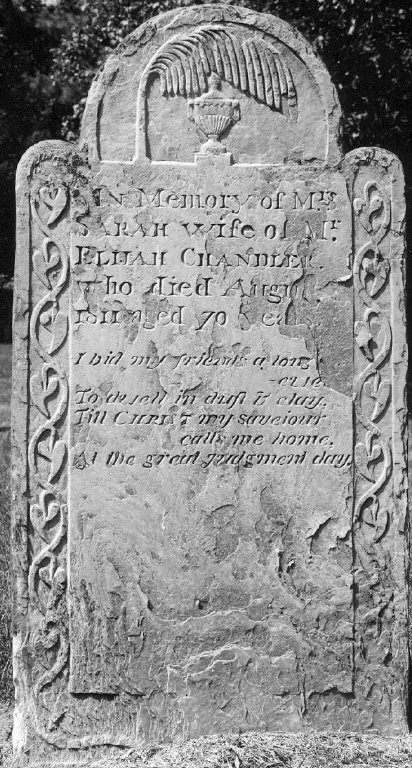 In Memory of Mrs
SARAH wife of Mr.
ELIJAH CHANDLER,
who died August
1811 aged 70 Years.
I bid my friends a long
To dwell in dust & clay,
Till CHRIST my saveiour
calls me home,
At the great judgment day.